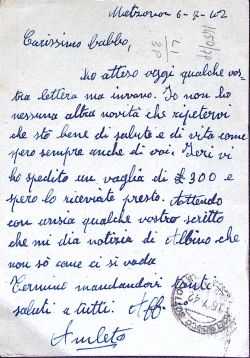 Metzovon 6-7-42
Carissimo babbo,
ho atteso oggi qualche vos
tra lettera ma invano. Io non ho
nessuna altra novità che ripetervi
che stò bene di salute e di vita come
spero sempre anche di voi. Ieri vi
ho spedito un vaglia di £300 e
spero lo riceviate presto. Attendo
con ansia qualche vostro scritto
che mi dia notizia di Albino che
non sò come ci si vada
Termino mandandovi tanti
saluti a tutti. Aff.
Amleto